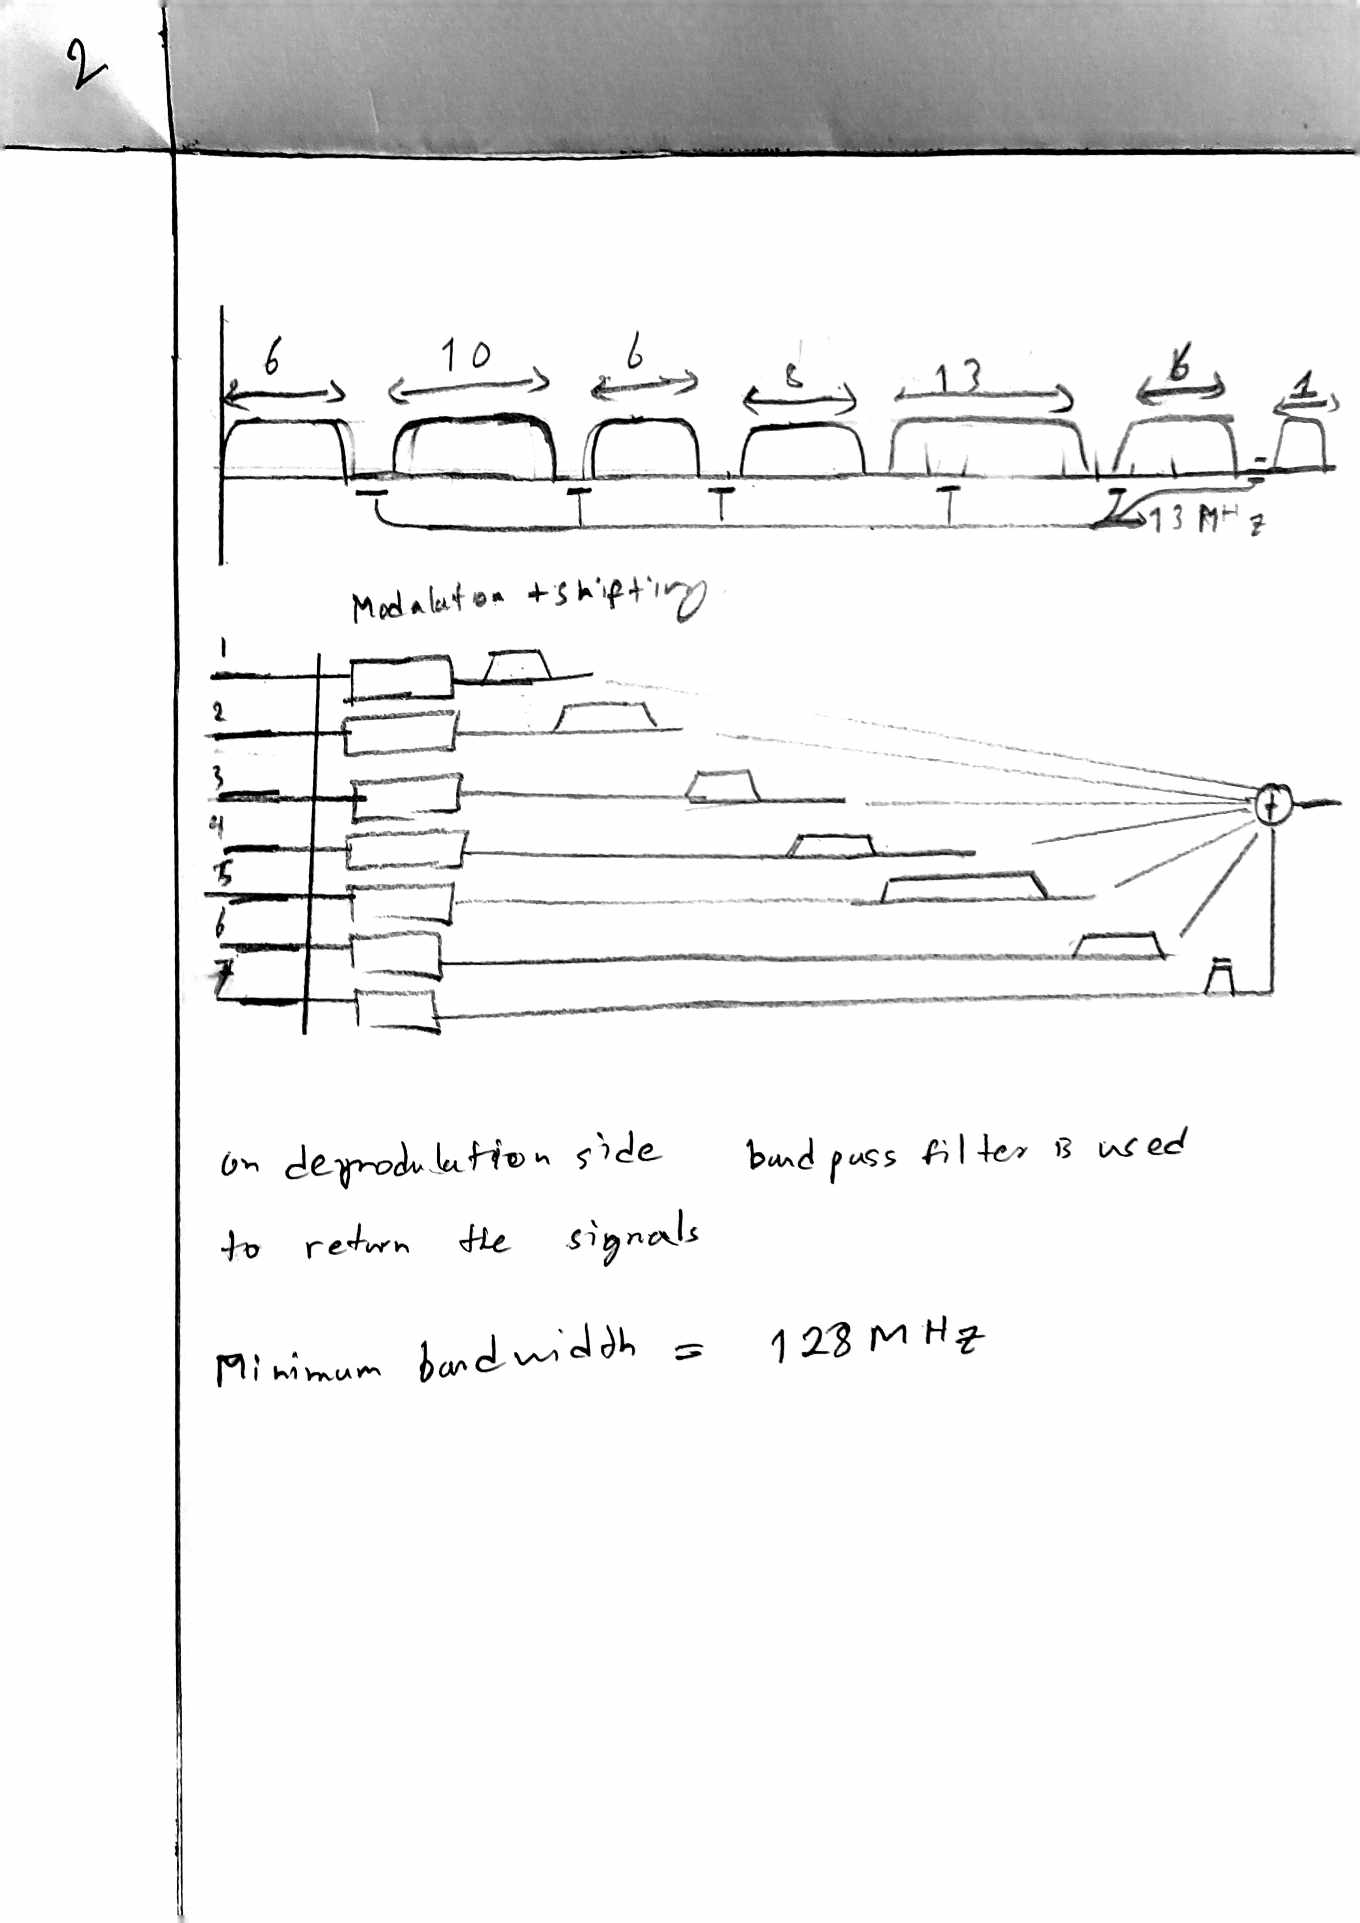 2
6 10 6 8 13 6 1
13 MHz
Modulation + shifting
1
2
3
4
5
6
7
+
on demodulation side band pass filter is used
to return the signals
Minimum bandwiddh = 128 MHz